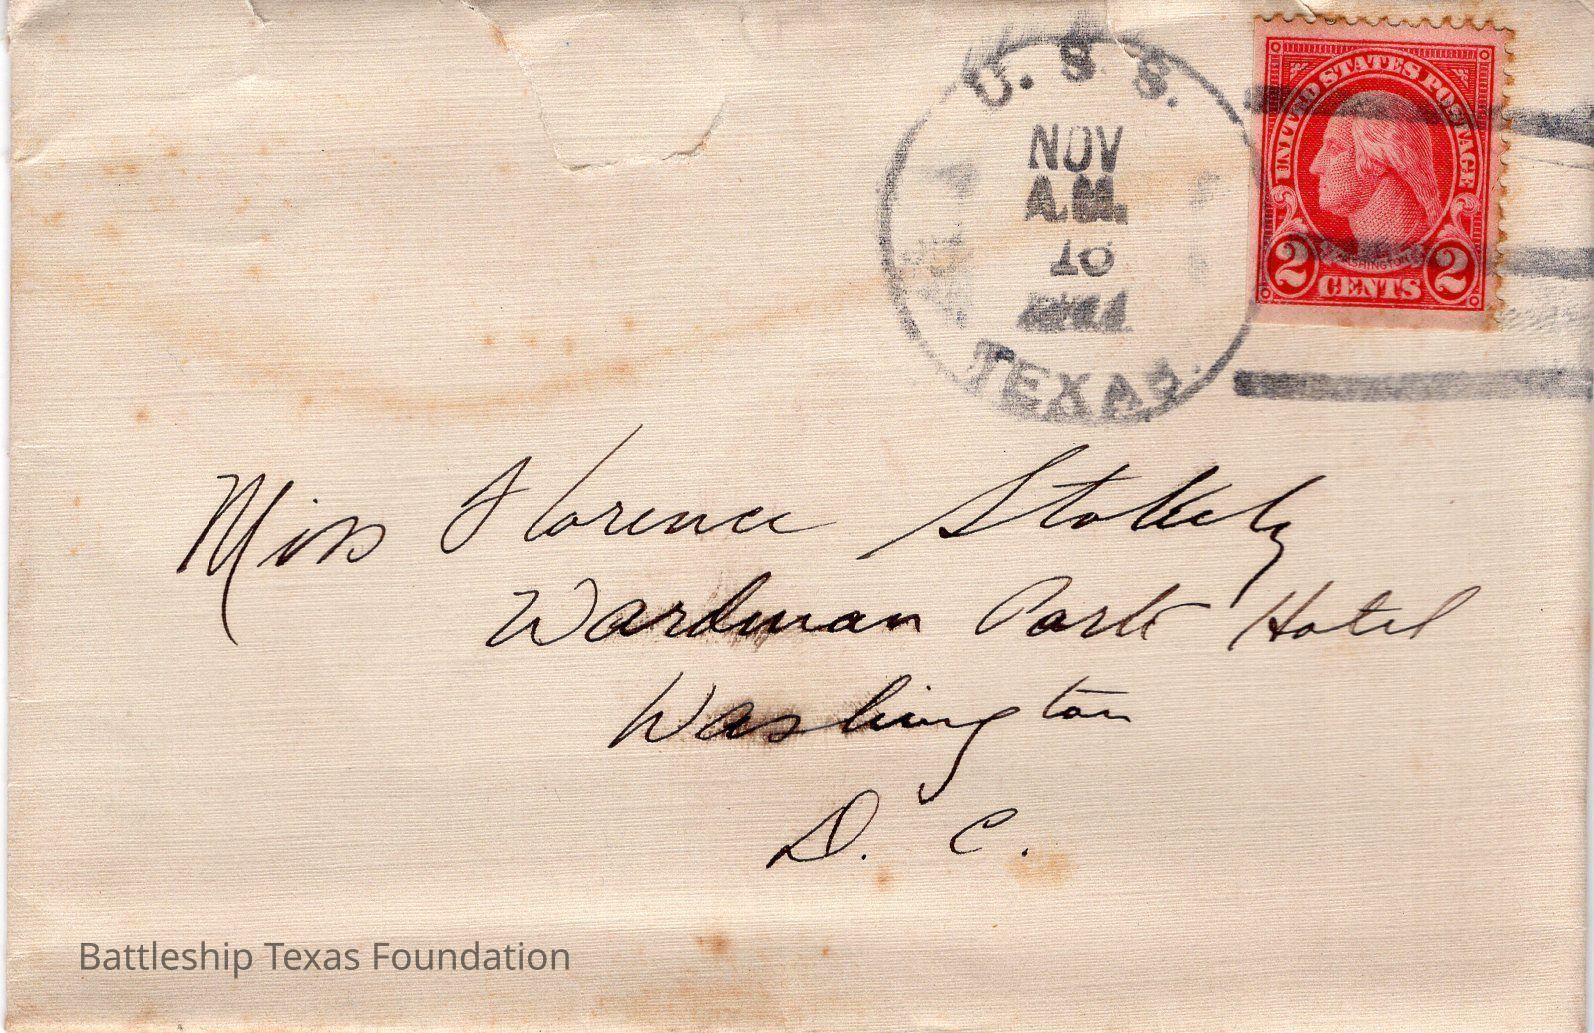 U. S. S.
NOV
A.M.
TEXAS.
UNITED STATES POSTAGE
WASHINGTON
2 CENTS 2
Miss Florence Stokely
Wardman Park Hotel
Washington
D. C.
Battleship Texas Foundation